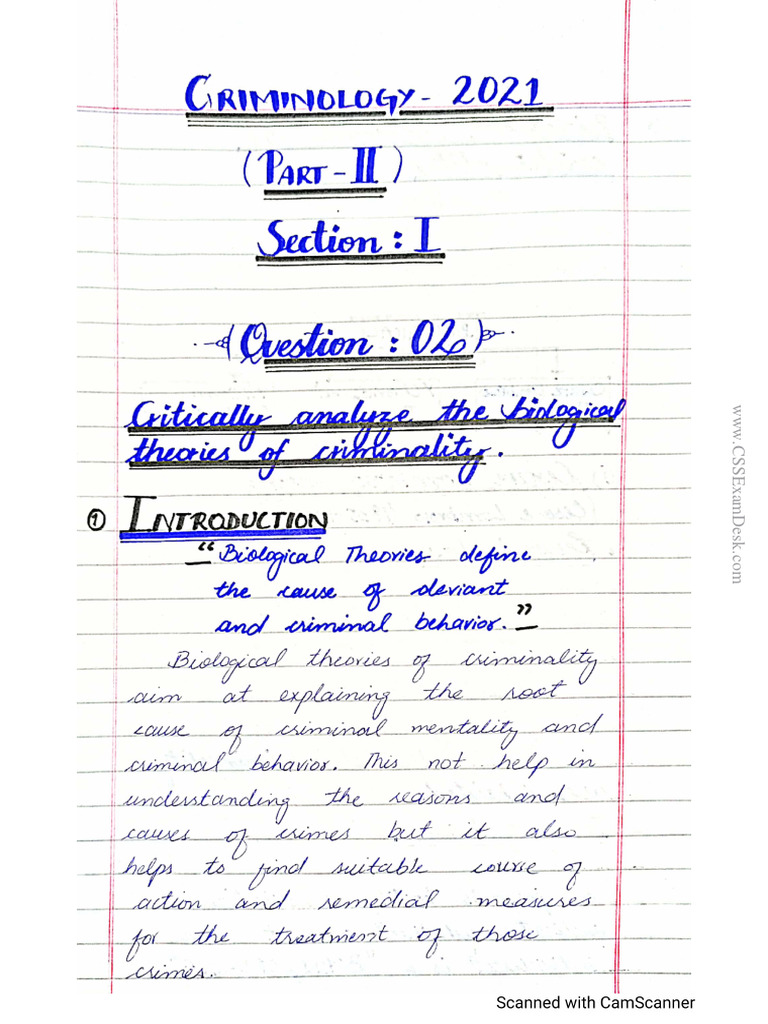 CRIMINOLOGY - 2021
(PART - II)
Section : I
Question : 02
Critically analyze the biological
theories of criminality.
① INTRODUCTION
“Biological Theories define
the cause of deviant
and criminal behavior.”
Biological theories of criminality
aim at explaining the root
cause of criminal mentality and
criminal behavior. This not help in
understanding the reasons and
causes of crimes but it also
helps to find suitable course of
action and remedial measures
for the treatment of those
crimes.
www.CSSExamDesk.com
Scanned with CamScanner